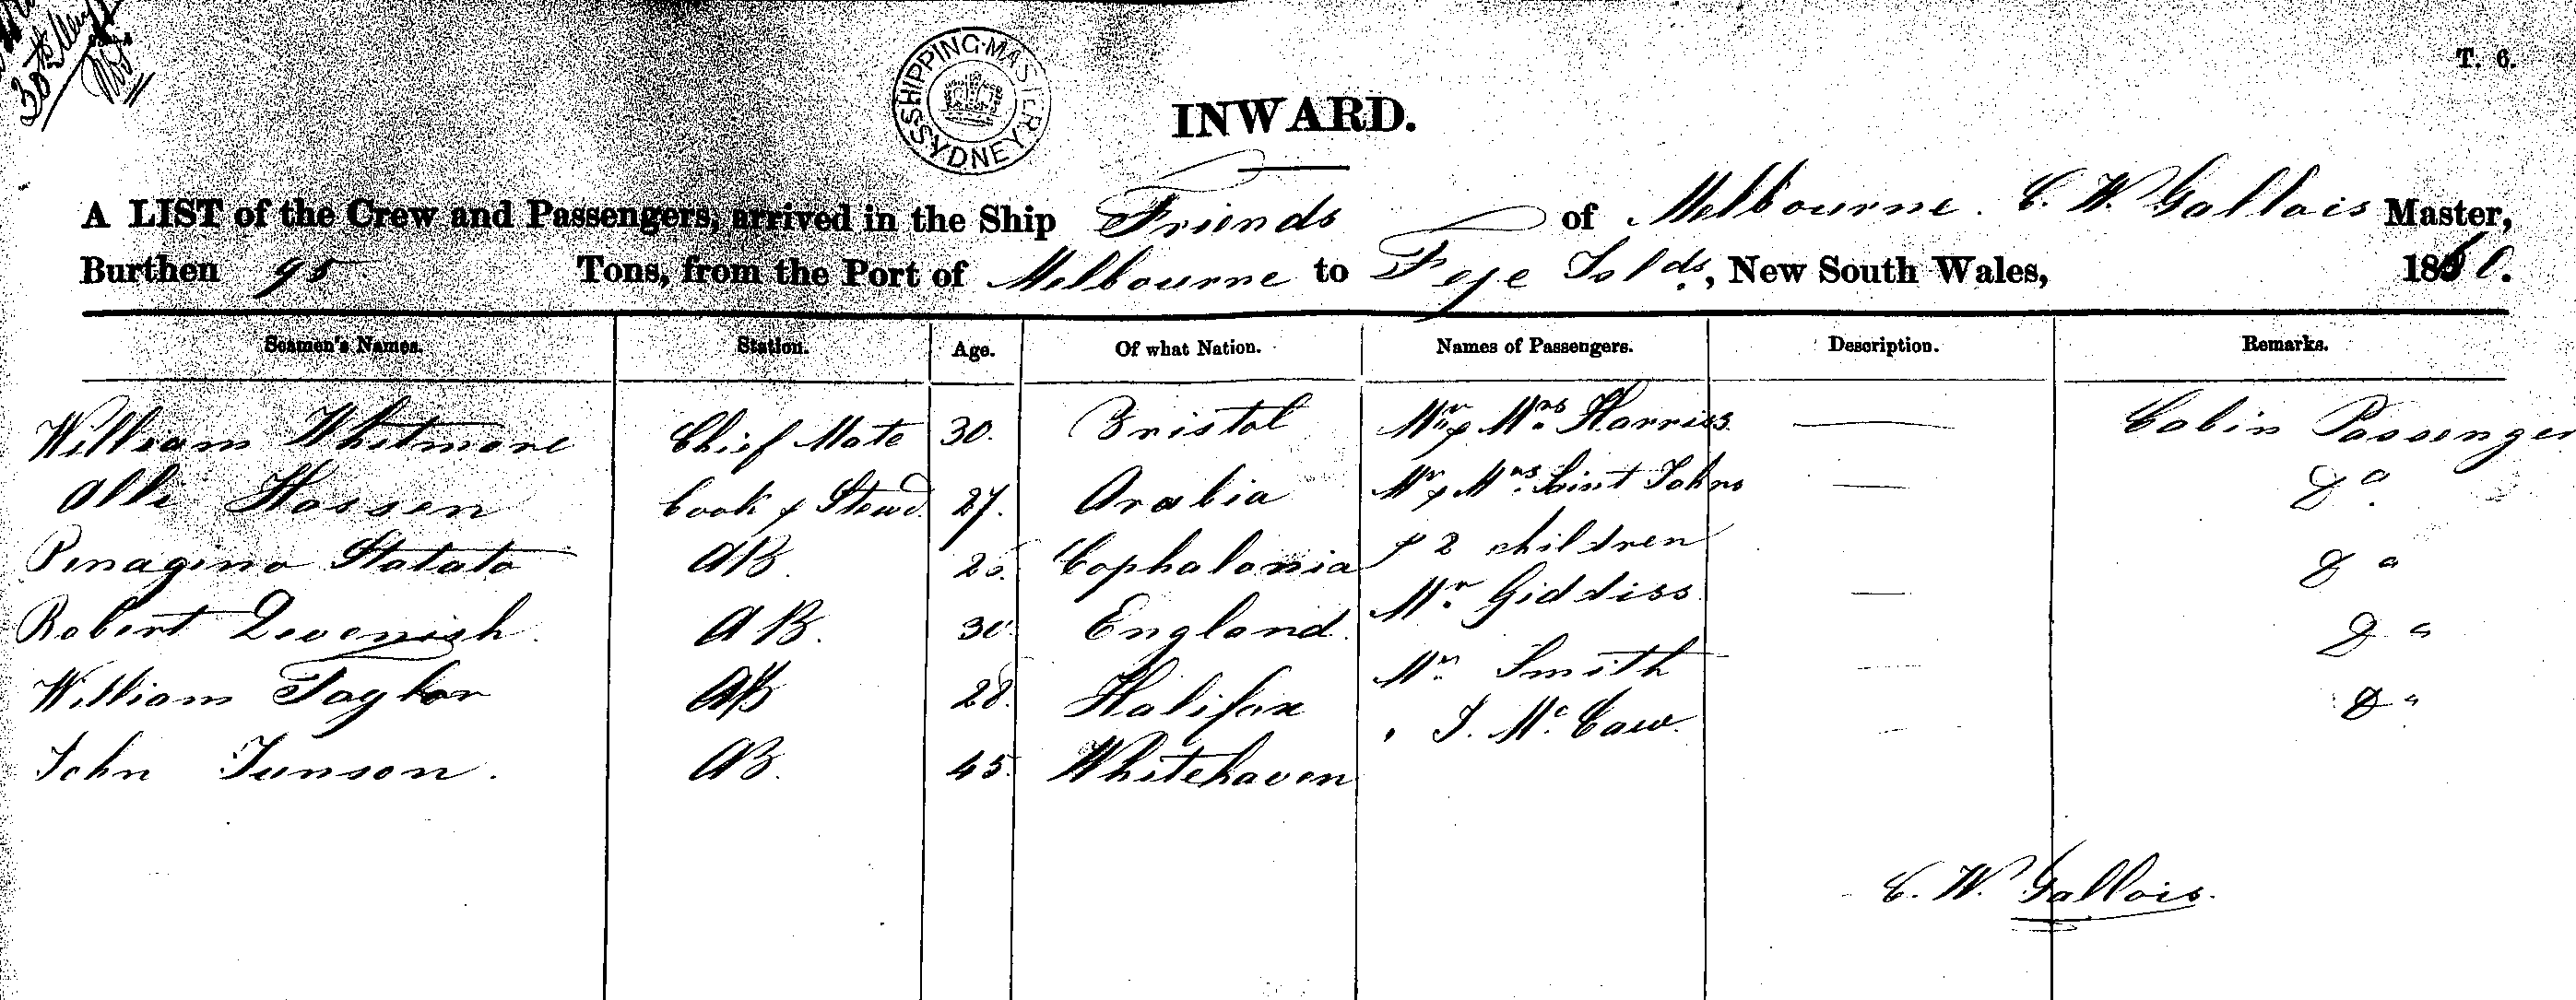 30th
T. 6.
SHIPPING MASTER SYDNEY
INWARD.
A LIST of the Crew and Passengers, arrived in the Ship Friends of Melbourne. C. W. Gallais Master,
Burthen 95 Tons, from the Port of Melbourne to Feje Islds, New South Wales, 1860.
Seamen's Names. Station. Age. Of what Nation. Names of Passengers. Description. Remarks.
William Whitmore Chief Mate 30. Bristol Mr & Mrs Harriss. — Cabin Passenger
Alli Hassen Cook & Stewd. 27. Arabia Mr & Mrs. Saint Johns — Do.
Penagino Statato AB. 25. Cephalonia & 2 children Do
Robert Devenish. AB. 30. England. Mr. Giddiss — Do
William Taylor AB 28. Halifax Mr. Smith — Do
John Junson. AB. 45. Whitehaven " J. Mc.Caw. —
C. W. Gallais.